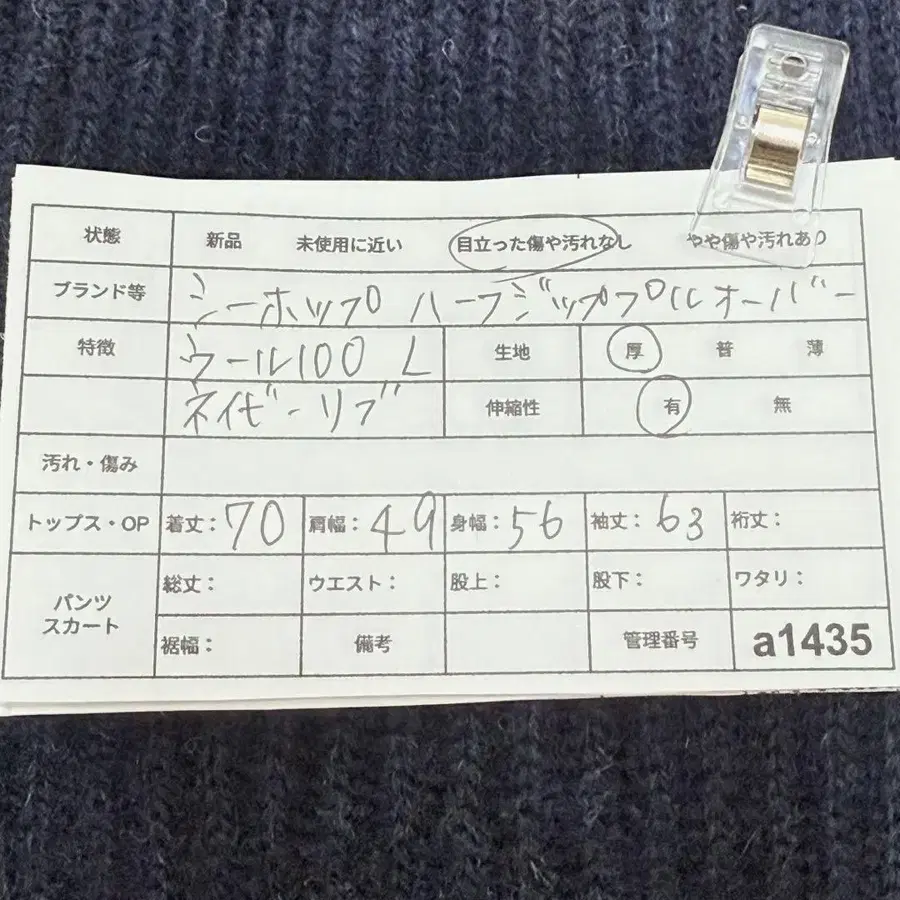 状態 新品 未使用に近い 目立った傷や汚れなし やや傷や汚れあり
ブランド等 シーホップ ハーフジッププルオーバー
特徴 ウール100 L 生地 厚 普 薄
ネイビー リブ 伸縮性 有 無
汚れ・傷み
トップス・OP 着丈：70 肩幅：49 身幅：56 袖丈：63 裄丈：
パンツ スカート 総丈： ウエスト： 股上： 股下： ワタリ：
裾幅： 備考 管理番号 a1435